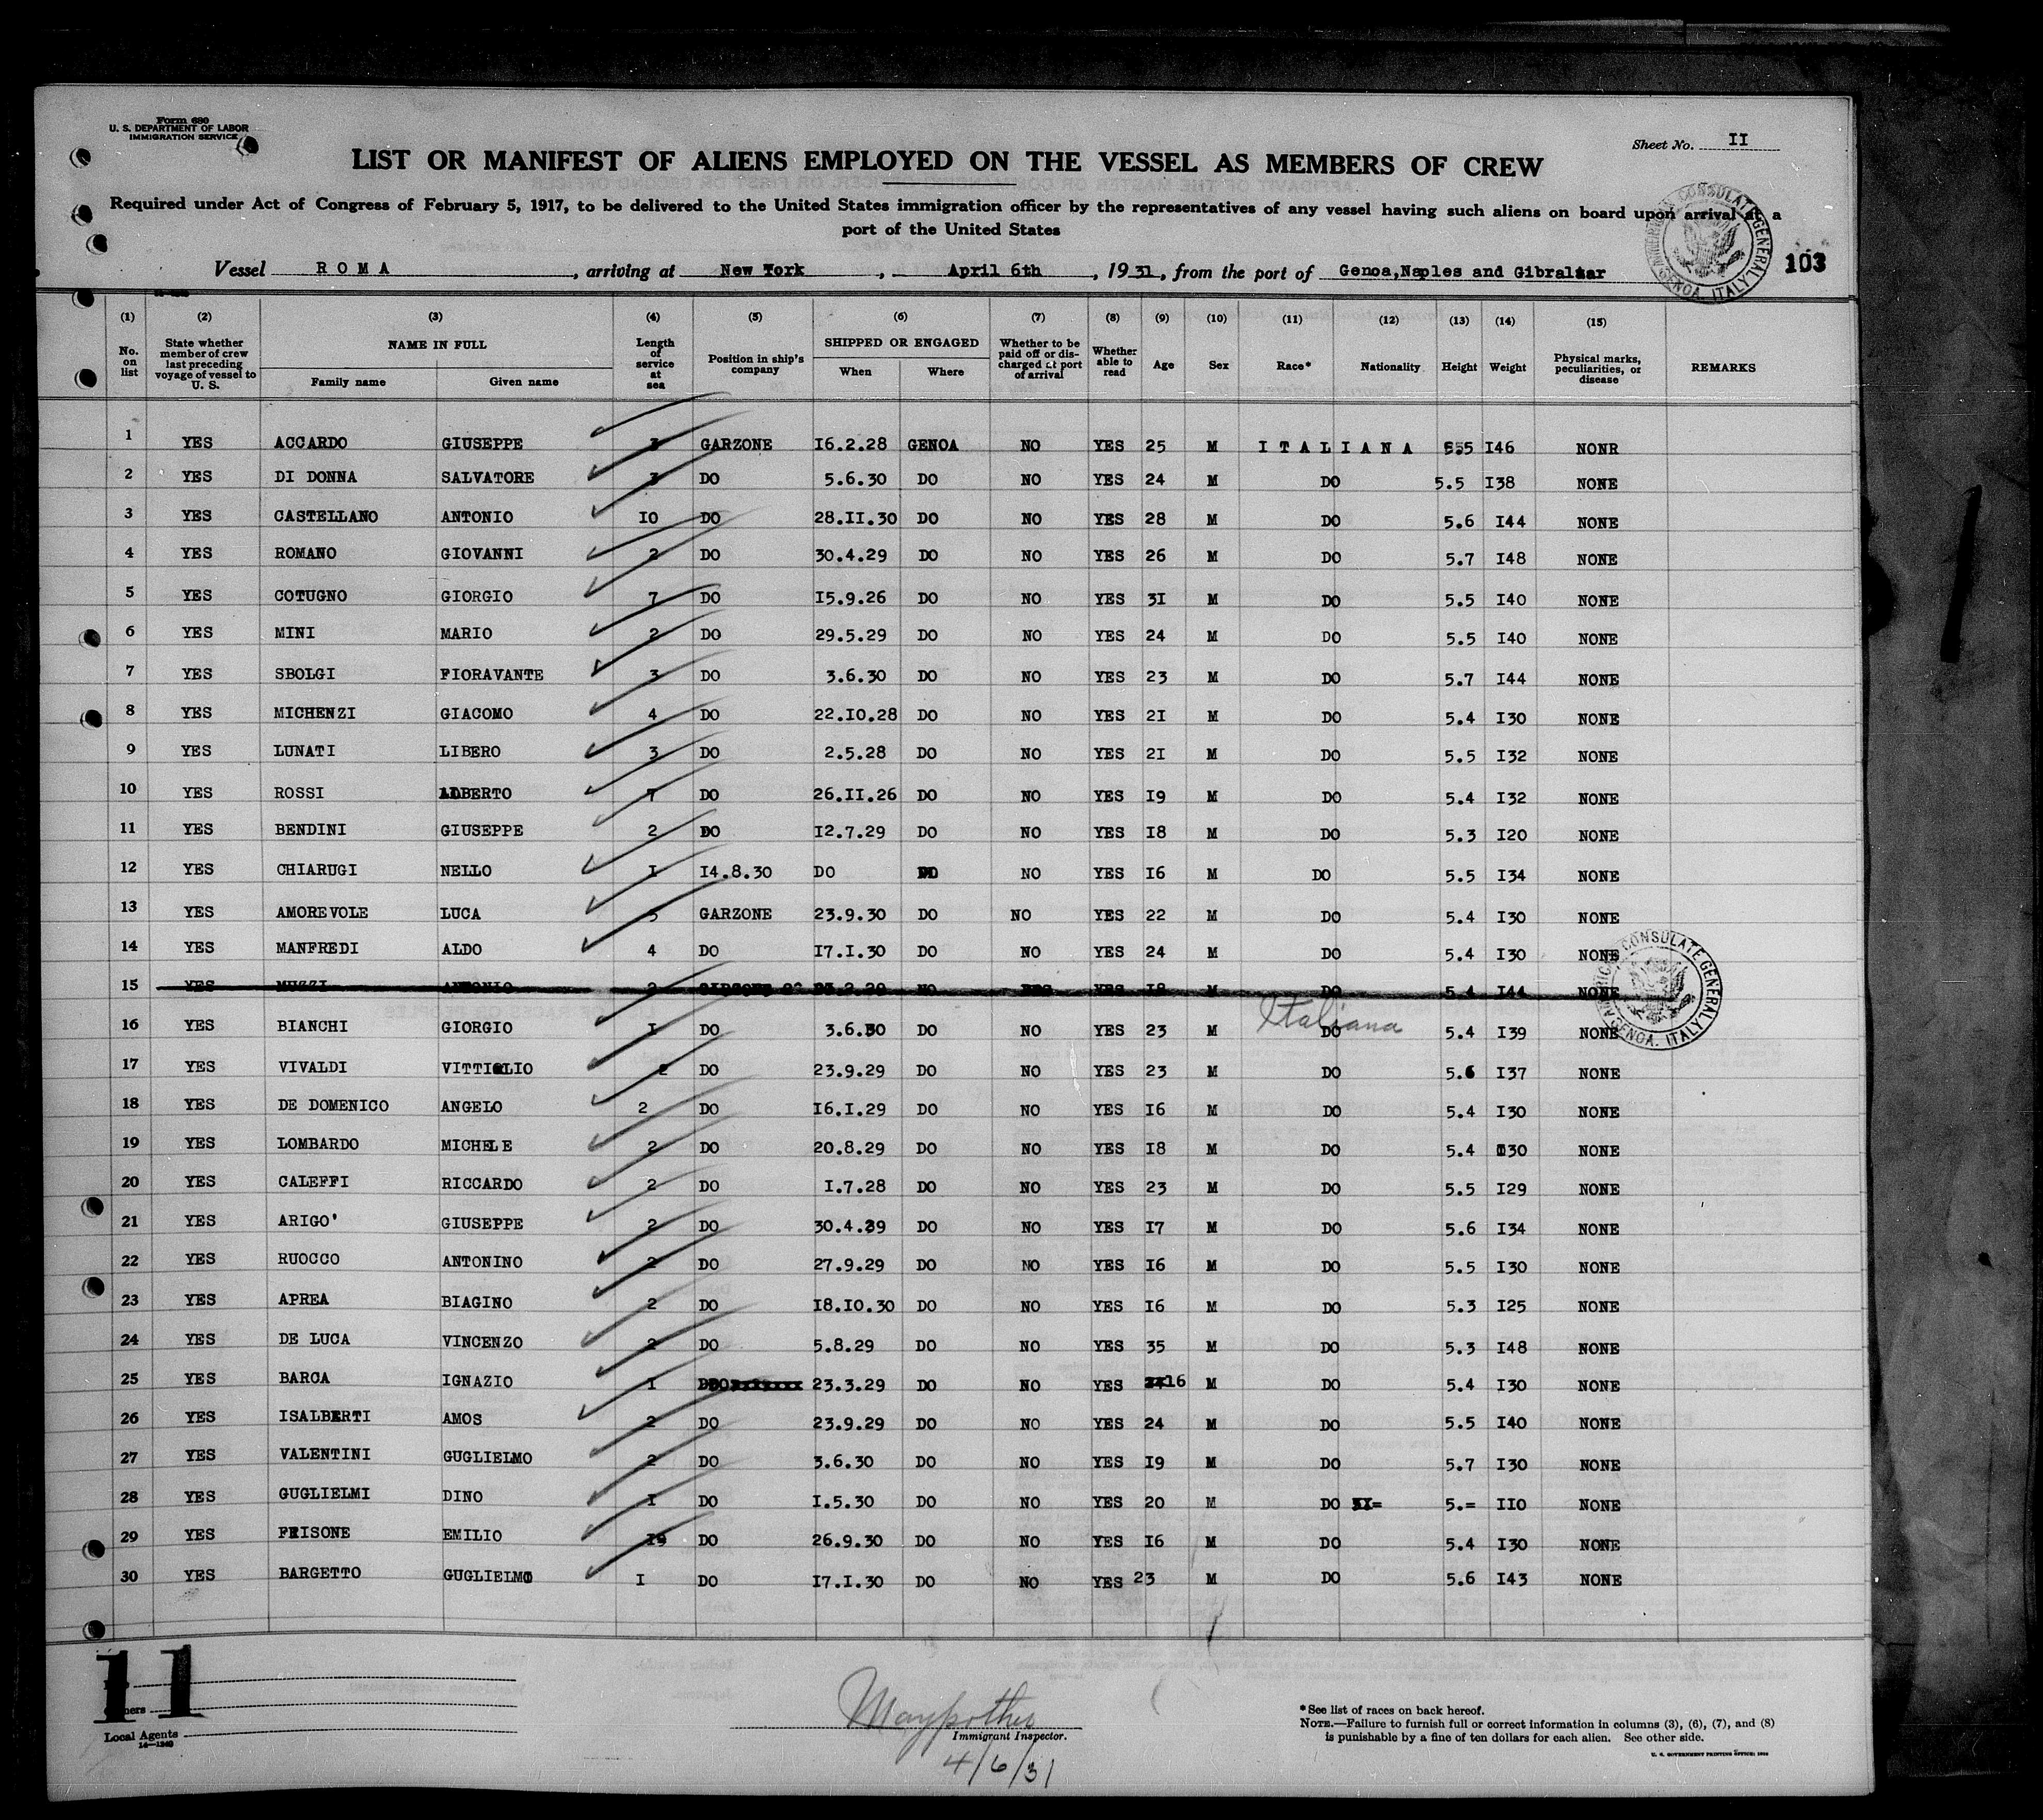 Form 680
U. S. DEPARTMENT OF LABOR
IMMIGRATION SERVICE
Sheet No. II
LIST OR MANIFEST OF ALIENS EMPLOYED ON THE VESSEL AS MEMBERS OF CREW
Required under Act of Congress of February 5, 1917, to be delivered to the United States immigration officer by the representatives of any vessel having such aliens on board upon arrival at a
port of the United States
AMERICAN CONSULATE GENERAL GENOA, ITALY
Vessel ROMA, arriving at New York, April 6th, 1931, from the port of Genoa,Naples and Gibraltar 103
(1) (2) (3) (4) (5) (6) (7) (8) (9) (10) (11) (12) (13) (14) (15)
No. on list State whether member of crew last preceding voyage of vessel to U. S. NAME IN FULL Family name Given name Length of service at sea Position in ship's company SHIPPED OR ENGAGED When Where Whether to be paid off or discharged at port of arrival Whether able to read Age Sex Race* Nationality Height Weight Physical marks, peculiarities, or disease REMARKS
1 YES ACCARDO GIUSEPPE 3 GARZONE I6.2.28 GENOA NO YES 25 M ITALIANA 555 I46 NONR
2 YES DI DONNA SALVATORE 3 DO 5.6.30 DO NO YES 24 M DO 5.5 I38 NONE
3 YES CASTELLANO ANTONIO IO DO 28.II.30 DO NO YES 28 M DO 5.6 I44 NONE
4 YES ROMANO GIOVANNI 2 DO 30.4.29 DO NO YES 26 M DO 5.7 I48 NONE
5 YES COTUGNO GIORGIO 7 DO I5.9.26 DO NO YES 3I M DO 5.5 I40 NONE
6 YES MINI MARIO 2 DO 29.5.29 DO NO YES 24 M DO 5.5 I40 NONE
7 YES SBOLGI FIORAVANTE 3 DO 3.6.30 DO NO YES 23 M DO 5.7 I44 NONE
8 YES MICHENZI GIACOMO 4 DO 22.IO.28 DO NO YES 2I M DO 5.4 I30 NONE
9 YES LUNATI LIBERO 3 DO 2.5.28 DO NO YES 2I M DO 5.5 I32 NONE
10 YES ROSSI ALBERTO 7 DO 26.II.26 DO NO YES I9 M DO 5.4 I32 NONE
11 YES BENDINI GIUSEPPE 2 DO I2.7.29 DO NO YES I8 M DO 5.3 I20 NONE
12 YES CHIARUGI NELLO I I4.8.30 DO DO NO YES I6 M DO 5.5 I34 NONE
13 YES AMOREVOLE LUCA 5 GARZONE 23.9.30 DO NO YES 22 M DO 5.4 I30 NONE
14 YES MANFREDI ALDO 4 DO I7.I.30 DO NO YES 24 M DO 5.4 I30 NONE
15 YES MUZZI ANTONIO YES I8 M DO 5.4 I44 NONE
AMERICAN CONSULATE GENERAL GENOA, ITALY
Italiana
16 YES BIANCHI GIORGIO I DO 3.6.30 DO NO YES 23 M DO 5.4 I39 NONE
17 YES VIVALDI VITTIGLIO 2 DO 23.9.29 DO NO YES 23 M DO 5.6 I37 NONE
18 YES DE DOMENICO ANGELO 2 DO I6.I.29 DO NO YES I6 M DO 5.4 I30 NONE
19 YES LOMBARDO MICHELE 2 DO 20.8.29 DO NO YES I8 M DO 5.4 I30 NONE
20 YES CALEFFI RICCARDO 2 DO I.7.28 DO NO YES 23 M DO 5.5 I29 NONE
21 YES ARIGO' GIUSEPPE 2 DO 30.4.29 DO NO YES I7 M DO 5.6 I34 NONE
22 YES RUOCCO ANTONINO 2 DO 27.9.29 DO NO YES I6 M DO 5.5 I30 NONE
23 YES APREA BIAGINO 2 DO I8.IO.30 DO NO YES I6 M DO 5.3 I25 NONE
24 YES DE LUCA VINCENZO 2 DO 5.8.29 DO NO YES 35 M DO 5.3 I48 NONE
25 YES BARCA IGNAZIO I DO 23.3.29 DO NO YES 16 M DO 5.4 I30 NONE
26 YES ISALBERTI AMOS 2 DO 23.9.29 DO NO YES 24 M DO 5.5 I40 NONE
27 YES VALENTINI GUGLIELMO 2 DO 3.6.30 DO NO YES I9 M DO 5.7 I30 NONE
28 YES GUGLIELMI DINO I DO I.5.30 DO NO YES 20 M DO 5.= IIO NONE
29 YES FRISONE EMILIO DO 26.9.30 DO NO YES I6 M DO 5.4 I30 NONE
30 YES BARGETTO GUGLIELMO I DO I7.I.30 DO NO YES 23 M DO 5.6 I43 NONE
11
Local Agents
14—1240
Immigrant Inspector.
4/6/31
*See list of races on back hereof.
NOTE.—Failure to furnish full or correct information in columns (3), (6), (7), and (8)
is punishable by a fine of ten dollars for each alien. See other side.
U. S. GOVERNMENT PRINTING OFFICE: